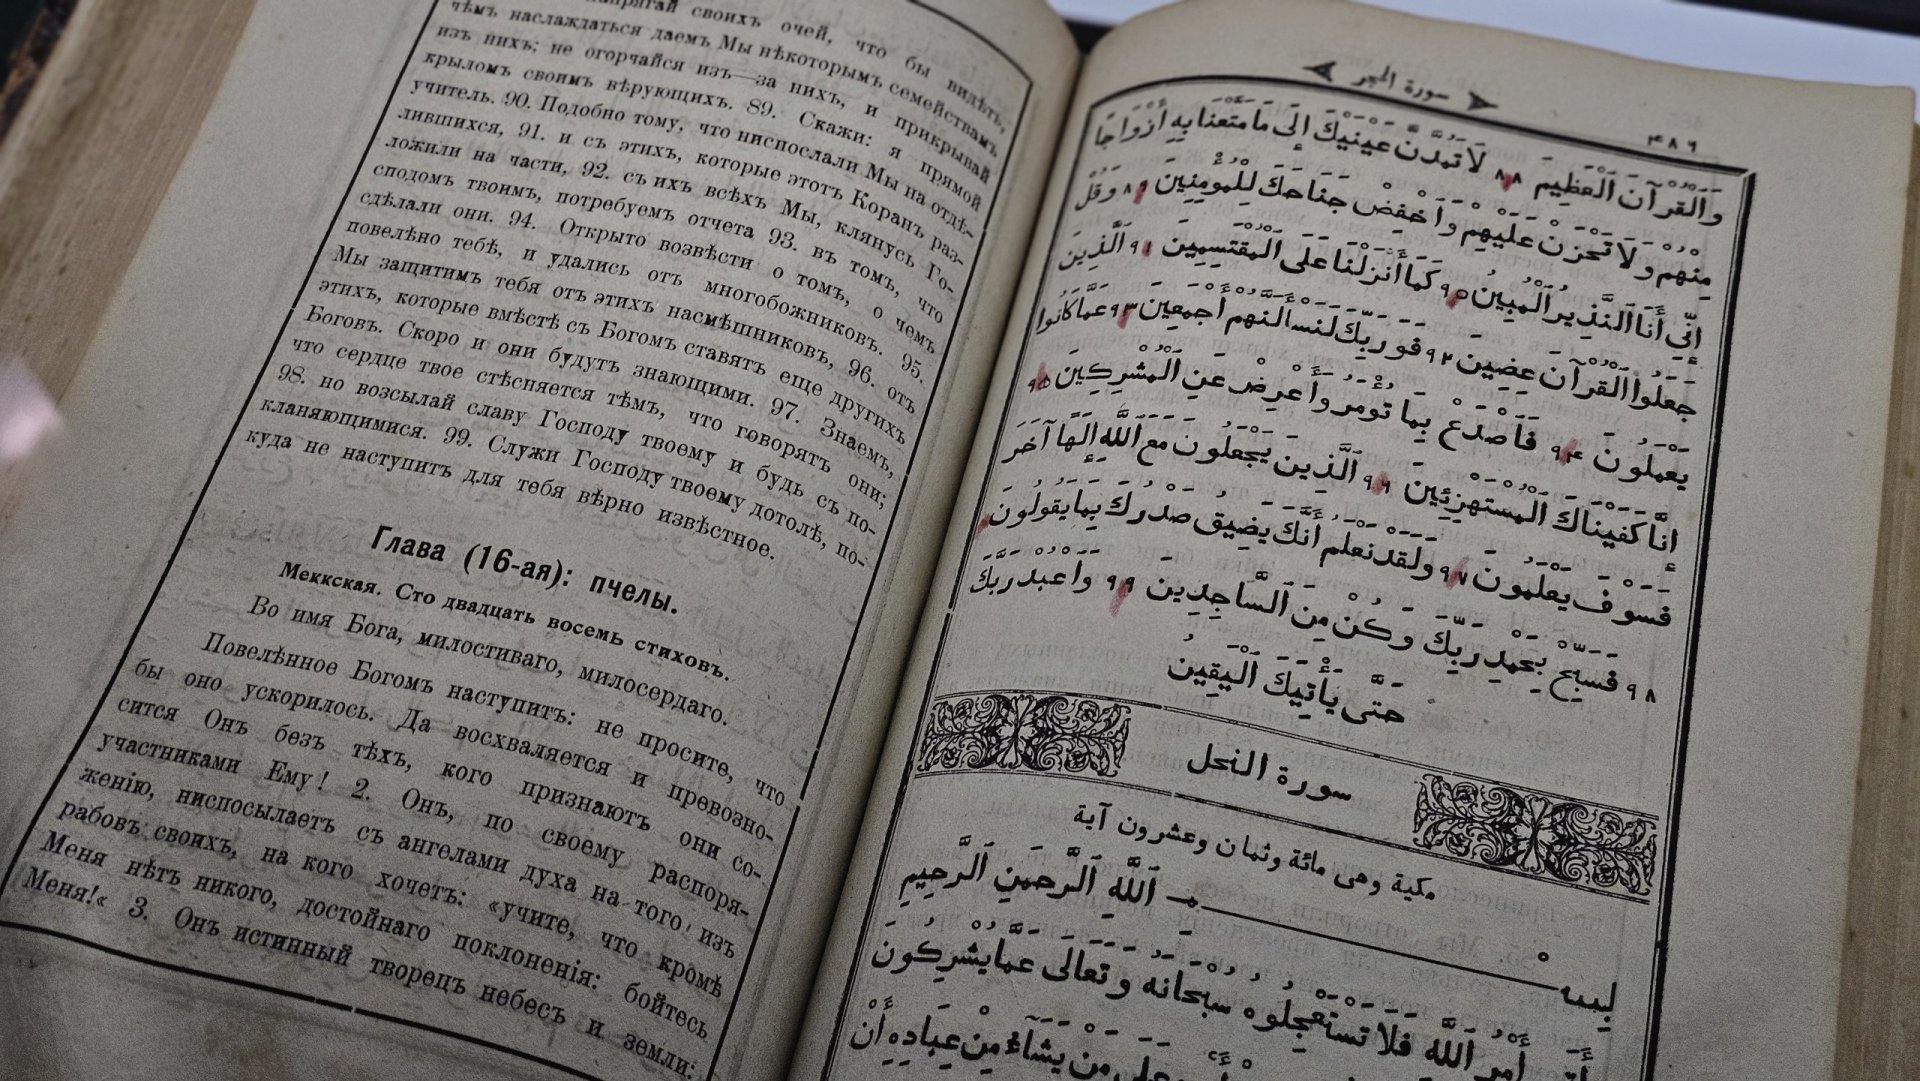 своихъ очей, что бы видѣть,
чѣмъ наслаждаться даемъ Мы нѣкоторымъ семействамъ
изъ нихъ; не огорчайся изъ—за нихъ, и прикрывай
крыломъ своимъ вѣрующихъ. 89. Скажи: я прямой
учитель. 90. Подобно тому, что ниспослали Мы на отдѣ-
лившихся, 91. и съ этихъ, которые этотъ Коранъ раз-
ложили на части, 92. съ ихъ всѣхъ Мы, клянусь Го-
сподомъ твоимъ, потребуемъ отчета 93. въ томъ, что
сдѣлали они. 94. Открыто возвѣсти о томъ, о чемъ
повелѣно тебѣ, и удались отъ многобожниковъ. 95.
Мы защитимъ тебя отъ этихъ насмѣшниковъ, 96. отъ
этихъ, которые вмѣстѣ съ Богомъ ставятъ еще другихъ
Боговъ. Скоро и они будутъ знающими. 97. Знаемъ,
что сердце твое стѣсняется тѣмъ, что говорятъ они;
98. но возсылай славу Господу твоему и будь съ по-
кланяющимися. 99. Служи Господу твоему дотолѣ, по-
куда не наступитъ для тебя вѣрно извѣстное.
Глава (16-ая): пчелы.
Меккская. Сто двадцать восемь стиховъ.
Во имя Бога, милостиваго, милосердаго.
Повелѣнное Богомъ наступитъ: не просите, что
бы оно ускорилось. Да восхваляется и превозно-
сится Онъ безъ тѣхъ, кого признаютъ они со-
участниками Ему! 2. Онъ, по своему распоря-
женію, ниспосылаетъ съ ангелами духа на того изъ
рабовъ своихъ, на кого хочетъ: «учите, что кромѣ
Меня нѣтъ никого, достойнаго поклоненія: бойтесь
Меня!« 3. Онъ истинный творецъ небесъ и земли:
سورة الحجر
٤٨٦
وَٱلْقُرْآنَ ٱلْعَظِيمَ ٨٨ لَا تَمُدَّنَّ عَيْنَيْكَ إِلَى مَا مَتَّعْنَا بِهِ أَزْوَاجًا
مِنْهُمْ وَلَا تَحْزَنْ عَلَيْهِمْ وَٱخْفِضْ جَنَاحَكَ لِلْمُومِنِينَ ٨٩ وَقُلْ
إِنِّي أَنَا ٱلنَّذِيرُ ٱلْمُبِينُ ٩٠ كَمَا أَنْزَلْنَا عَلَى ٱلْمُقْتَسِمِينَ ٩١ ٱلَّذِينَ
جَعَلُوا ٱلْقُرْآنَ عِضِينَ ٩٢ فَوَرَبِّكَ لَنَسْأَلَنَّهُمْ أَجْمَعِينَ ٩٣ عَمَّا كَانُوا
يَعْمَلُونَ ٩٤ فَٱصْدَعْ بِمَا تُومَرُ وَأَعْرِضْ عَنِ ٱلْمُشْرِكِينَ ٩٥
إِنَّا كَفَيْنَاكَ ٱلْمُسْتَهْزِئِينَ ٩٦ ٱلَّذِينَ يَجْعَلُونَ مَعَ ٱللَّهِ إِلَهًا آخَرَ
فَسَوْفَ يَعْلَمُونَ ٩٧ وَلَقَدْ نَعْلَمُ أَنَّكَ يَضِيقُ صَدْرُكَ بِمَا يَقُولُونَ
٩٨ فَسَبِّحْ بِحَمْدِ رَبِّكَ وَكُنْ مِنَ ٱلسَّاجِدِينَ ٩٩ وَٱعْبُدْ رَبَّكَ
حَتَّى يَأْتِيَكَ ٱلْيَقِينُ
سورة النحل
مكية وهى مائة وثمان وعشرون آية
بِسْمِ ٱللَّهِ ٱلرَّحْمَنِ ٱلرَّحِيمِ
أَتَى أَمْرُ ٱللَّهِ فَلَا تَسْتَعْجِلُوهُ سُبْحَانَهُ وَتَعَالَى عَمَّا يُشْرِكُونَ
عَلَى مَنْ يَشَآءُ مِنْ عِبَادِهِ أَنْ